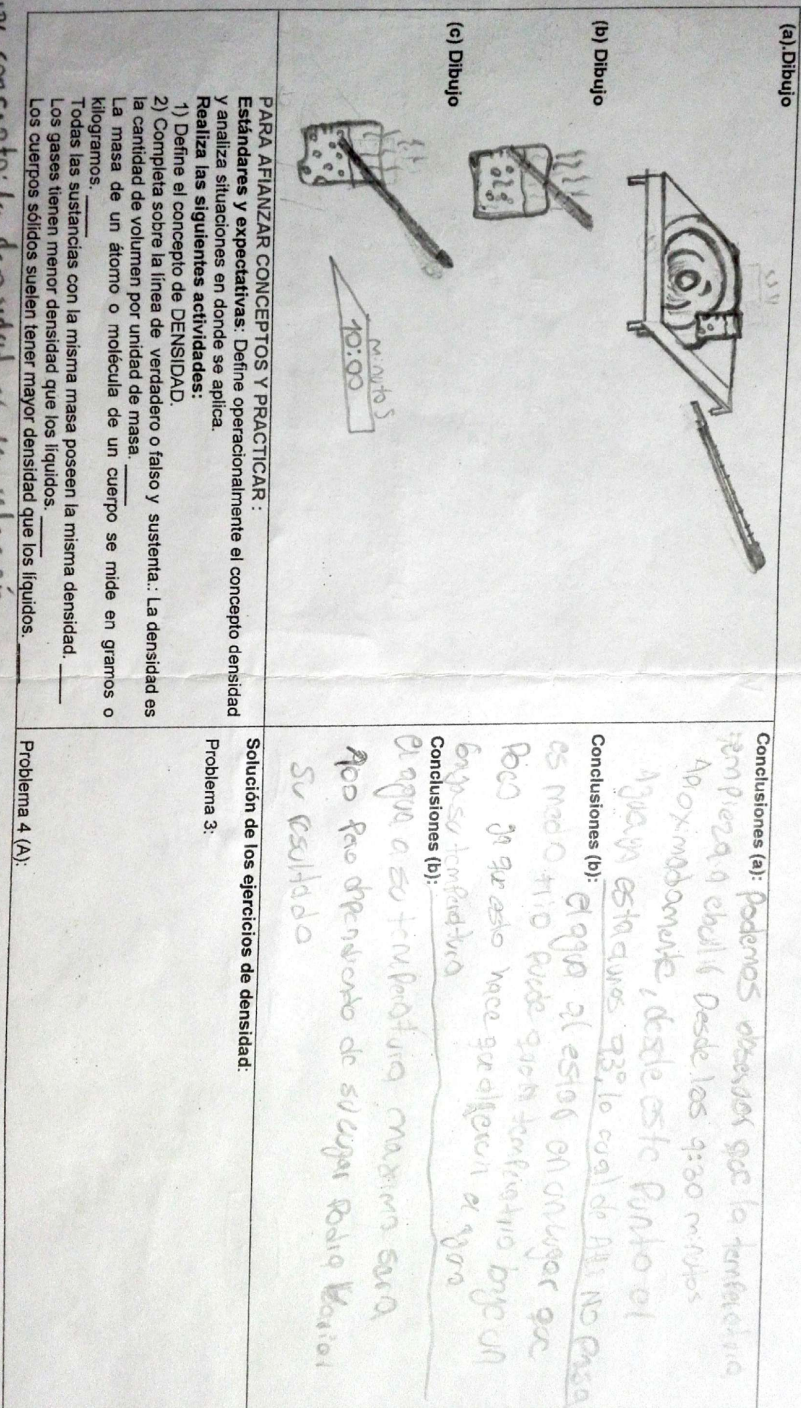 (a).Dibujo
(b) Dibujo
(c) Dibujo
minutos
10:00
Conclusiones (a): Podemos observar que la temperatura
empieza a ebullir Desde los 9:30 minutos
Aproximadamente, desde este Punto el
Agua ya esta a unos 93°, lo cual de Allí No Pasa
Conclusiones (b): el agua al estar en un lugar que
es medio frio puede que la temperatura baje un
Poco ya que esto hace que el agua
baja su temperatura
Conclusiones (b):
el agua a su temperatura maxima sera
100 Pero dependiendo de su lugar Podria Variar
Su resultado
PARA AFIANZAR CONCEPTOS Y PRACTICAR :
Estándares y expectativas: Define operacionalmente el concepto densidad
y analiza situaciones en donde se aplica.
Realiza las siguientes actividades:
1) Define el concepto de DENSIDAD.
2) Completa sobre la línea de verdadero o falso y sustenta.: La densidad es
la cantidad de volumen por unidad de masa. ____
La masa de un átomo o molécula de un cuerpo se mide en gramos o
kilogramos. ____
Todas las sustancias con la misma masa poseen la misma densidad. ____
Los gases tienen menor densidad que los líquidos. ____
Los cuerpos sólidos suelen tener mayor densidad que los líquidos. ____
Solución de los ejercicios de densidad:
Problema 3:
Problema 4 (A):